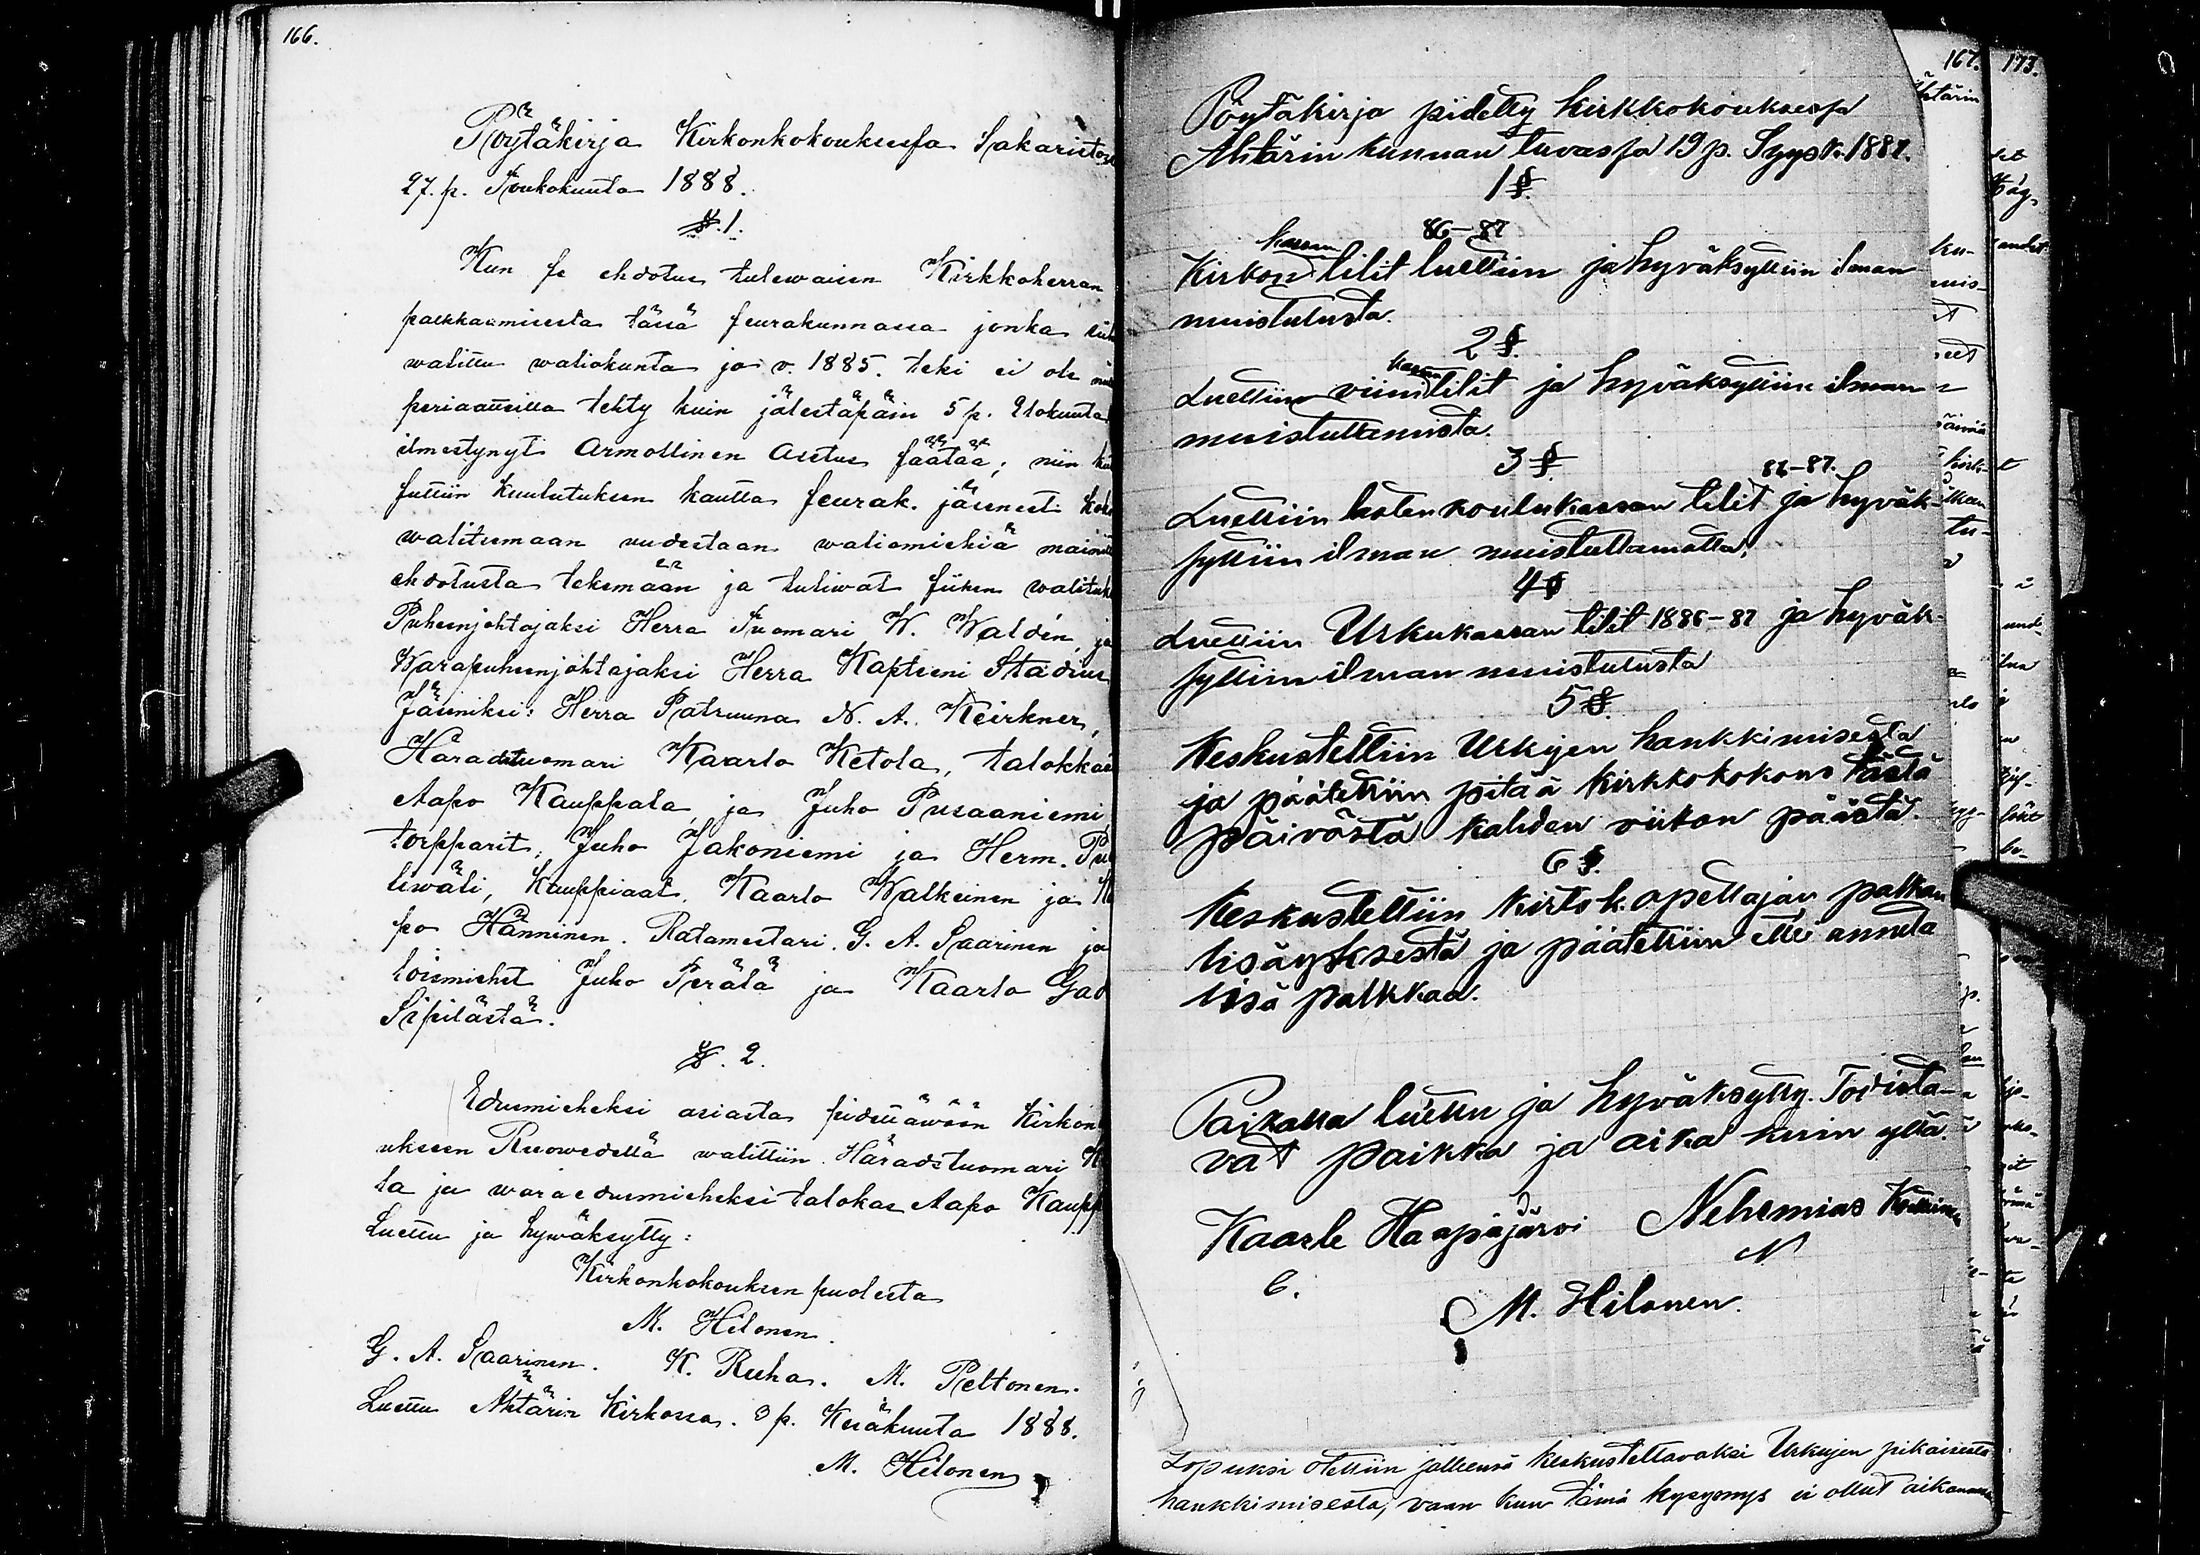 166.
Pöytäkirja Kirkonkokouksessa Sakaristos
27. p. Toukokuuta 1888.
§. 1.
Kun se ehdotus tulewaisen Kirkkoherran
palkkaamisesta tässä seurakunnassa jonka
walittu waliokunta jo v. 1885. teki ei ole
periaatteilla tehty kuin jälestäpäin 5 p. Elokuuta
ilmestynyt Armollinen Asetus säätää; niin
suttiin kuulutuksen kautta seurak. jäsenest
walitsemaan uudestaan waliomiehiä
ehdotusta tekemään ja tuliwat siihen
Puheenjohtajaksi Herra Tuomari W. Waldén, ja
Warapuheenjohtajaksi Herra Kapteeni Stadius
Jäseniksi: Herra Patruuna N. A. Keirkner,
Häradstuomari Kaarlo Ketola, talokka
Aapo Kauppala, ja Juho Pusaaniemi
torpparit, Juho Jakoniemi ja Herm. Pu
liwäli, Kauppiaat. Kaarlo Walkeinen ja
po Hänninen. Ratamestari. G. A. Saarinen ja
loismiehet Juho Perälä ja Kaarlo Gad
Sipilästä.
§. 2.
Edusmieheksi asiasta pidettäwään Kirkon
ukseen Ruowedellä walittiin. Häradstuomari K
la ja waraedusmieheksi talokas Aapo Kaupp
Luettu ja hywäksytty:
Kirkonkokouksen puolesta
M. Hilonen.
G. A. Saarinen. K. Ruha. M. Peltonen.
Luettu Ähtärin Kirkossa. 3 p. Kesäkuuta 1888.
M. Hilonen
167.
173.
Pöytäkirja pidetty kirkkokouksessa
Ähtärin kunnan tuvassa 19 p. Syysk. 1887.
1 §.
kassan 86-87
Kirkon tilit luettiin ja hyväksyttiin ilman
muistutusta.
2 §.
kassan
Luettiin viini tilit ja hyväksyttiin ilman
muistuttamista.
3 §. 86-87.
Luettiin lastenkoulukassan tilit ja hyväk-
syttiin ilman muistuttamatta.
4 §
Luettiin Urkukassan tilit 1886-87 ja hyväk-
syttiin ilman muistutusta
5 §.
Keskusteltiin Urkujen hankkimisesta
ja päätettiin pitää kirkkokokous tästä
päivästä kahden viikon päästä.
6 §.
Keskusteltiin kiertok. opettajan palkan
lisäyksestä ja päätettiin ettei anneta
lisä palkkaa.
Paikalla luettu ja hyväksytty. Todista-
vat paikka ja aika kuin yllä.
Kaarle Haapajärvi Nehemias
M. Hilonen.
Lopuksi otettiin jälleensä keskusteltavaksi Urkujen pikaisesta
hankkimisesta, vaan kun tämä kysymys ei ollut